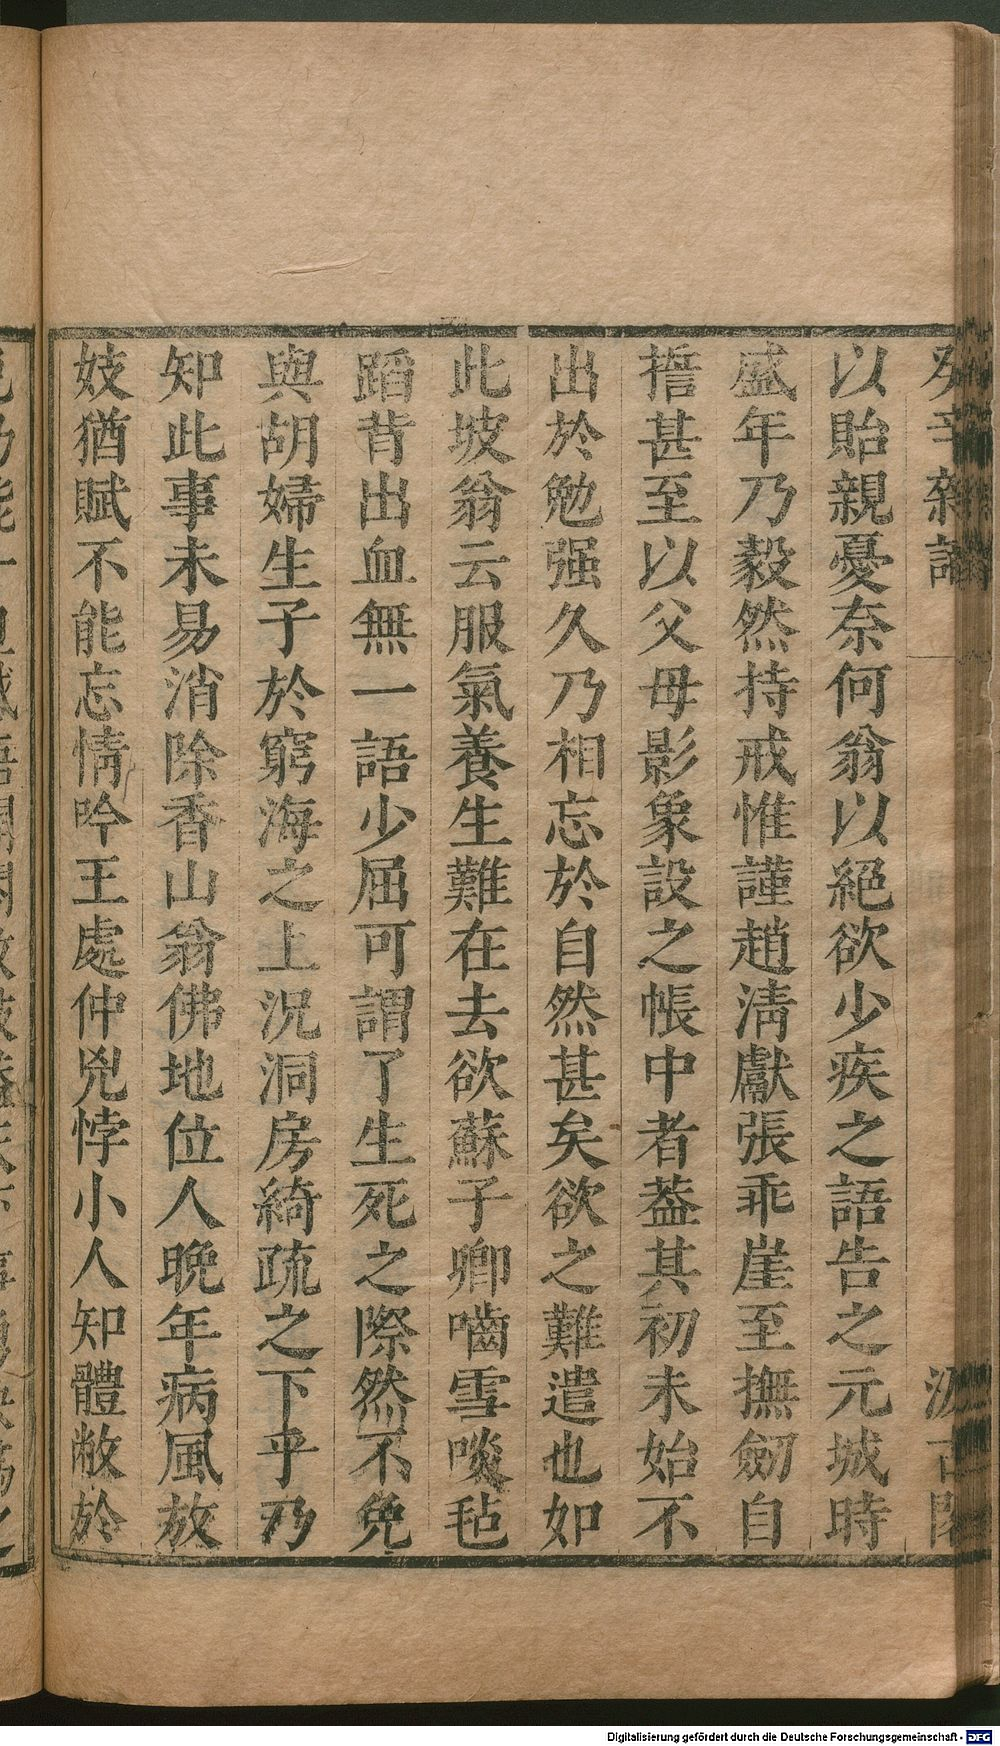 癸辛雜識
汲古閣
以貽親憂奈何翁以絕欲少疾之語告之元城時
盛年乃毅然持戒惟謹趙淸獻張乖崖至撫劒自
擔甚至以父母影象設之帳中者葢其初未始不
出於勉强久乃相忘於自然甚矣欲之難遣也如
此坡翁云服氣養生難在去欲蘇子卿嚙雪啖毡
蹈背出血無一語少屈可謂了生死之際然不免
與胡婦生子於窮海之上況洞房綺疏之下乎乃
知此事未易消除香山翁佛地位人晚年病風放
妓猶賦不能忘情吟王處仲兇悖小人知體敝於
Digitalisierung gefördert durch die Deutsche Forschungsgemeinschaft - DFG